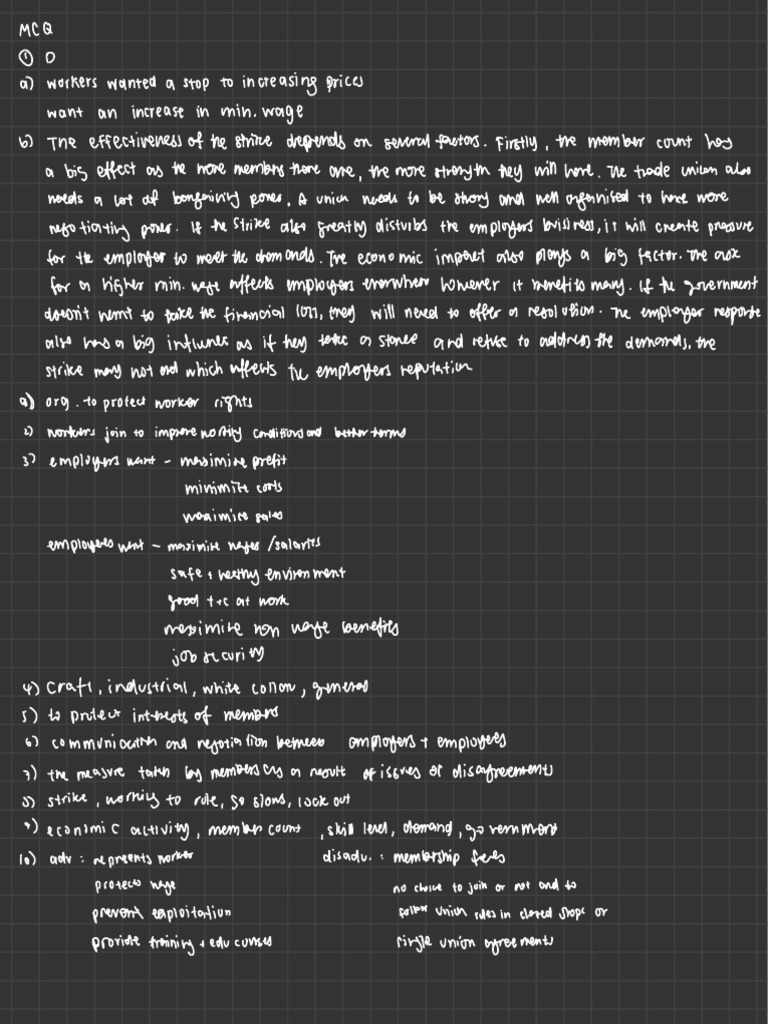 MCQ
① D
a) workers wanted a stop to increasing prices
want an increase in min. wage
b) The effectiveness of the strike depends on several factors. Firstly, the member count has
a big effect as the more members there are, the more strength they will have. The trade union also
needs a lot of bargaining power, A union needs to be strong and well organised to have more
negotiating power. If the strike also greatly disturbs the employers business, it will create pressure
for the employer to meet the demands. The economic impact also plays a big factor. The
for a higher min. wage affects employers everywhere however it benefits many. If the government
doesn't want to take the financial loss, they will need to offer a resolution. The employer response
also has a big influence as if they take a stance and refuse to address the demands, the
strike may not end which affects the employers reputation
a) org. to protect worker rights
2) workers join to improve working conditions and better terms
3) employers want - maximise profit
minimise costs
maximise sales
employees want - maximise wages / salaries
safe + healthy environment
good t+c at work
maximise non wage benefits
job security
4) craft, industrial, white collar, general
5) to protect interests of members
6) communication and negotiation between employers + employees
7) the measure taken by members as a result of issues or disagreements
8) strike, working to rule, go slows, lock out
9) economic activity, member count, skill level, demand, government
10) adv : represents worker disadv. : membership fees
protects wage no choice to join or not and to
prevent exploitation follow union rules in closed shops or
provide training + edu courses single union agreements